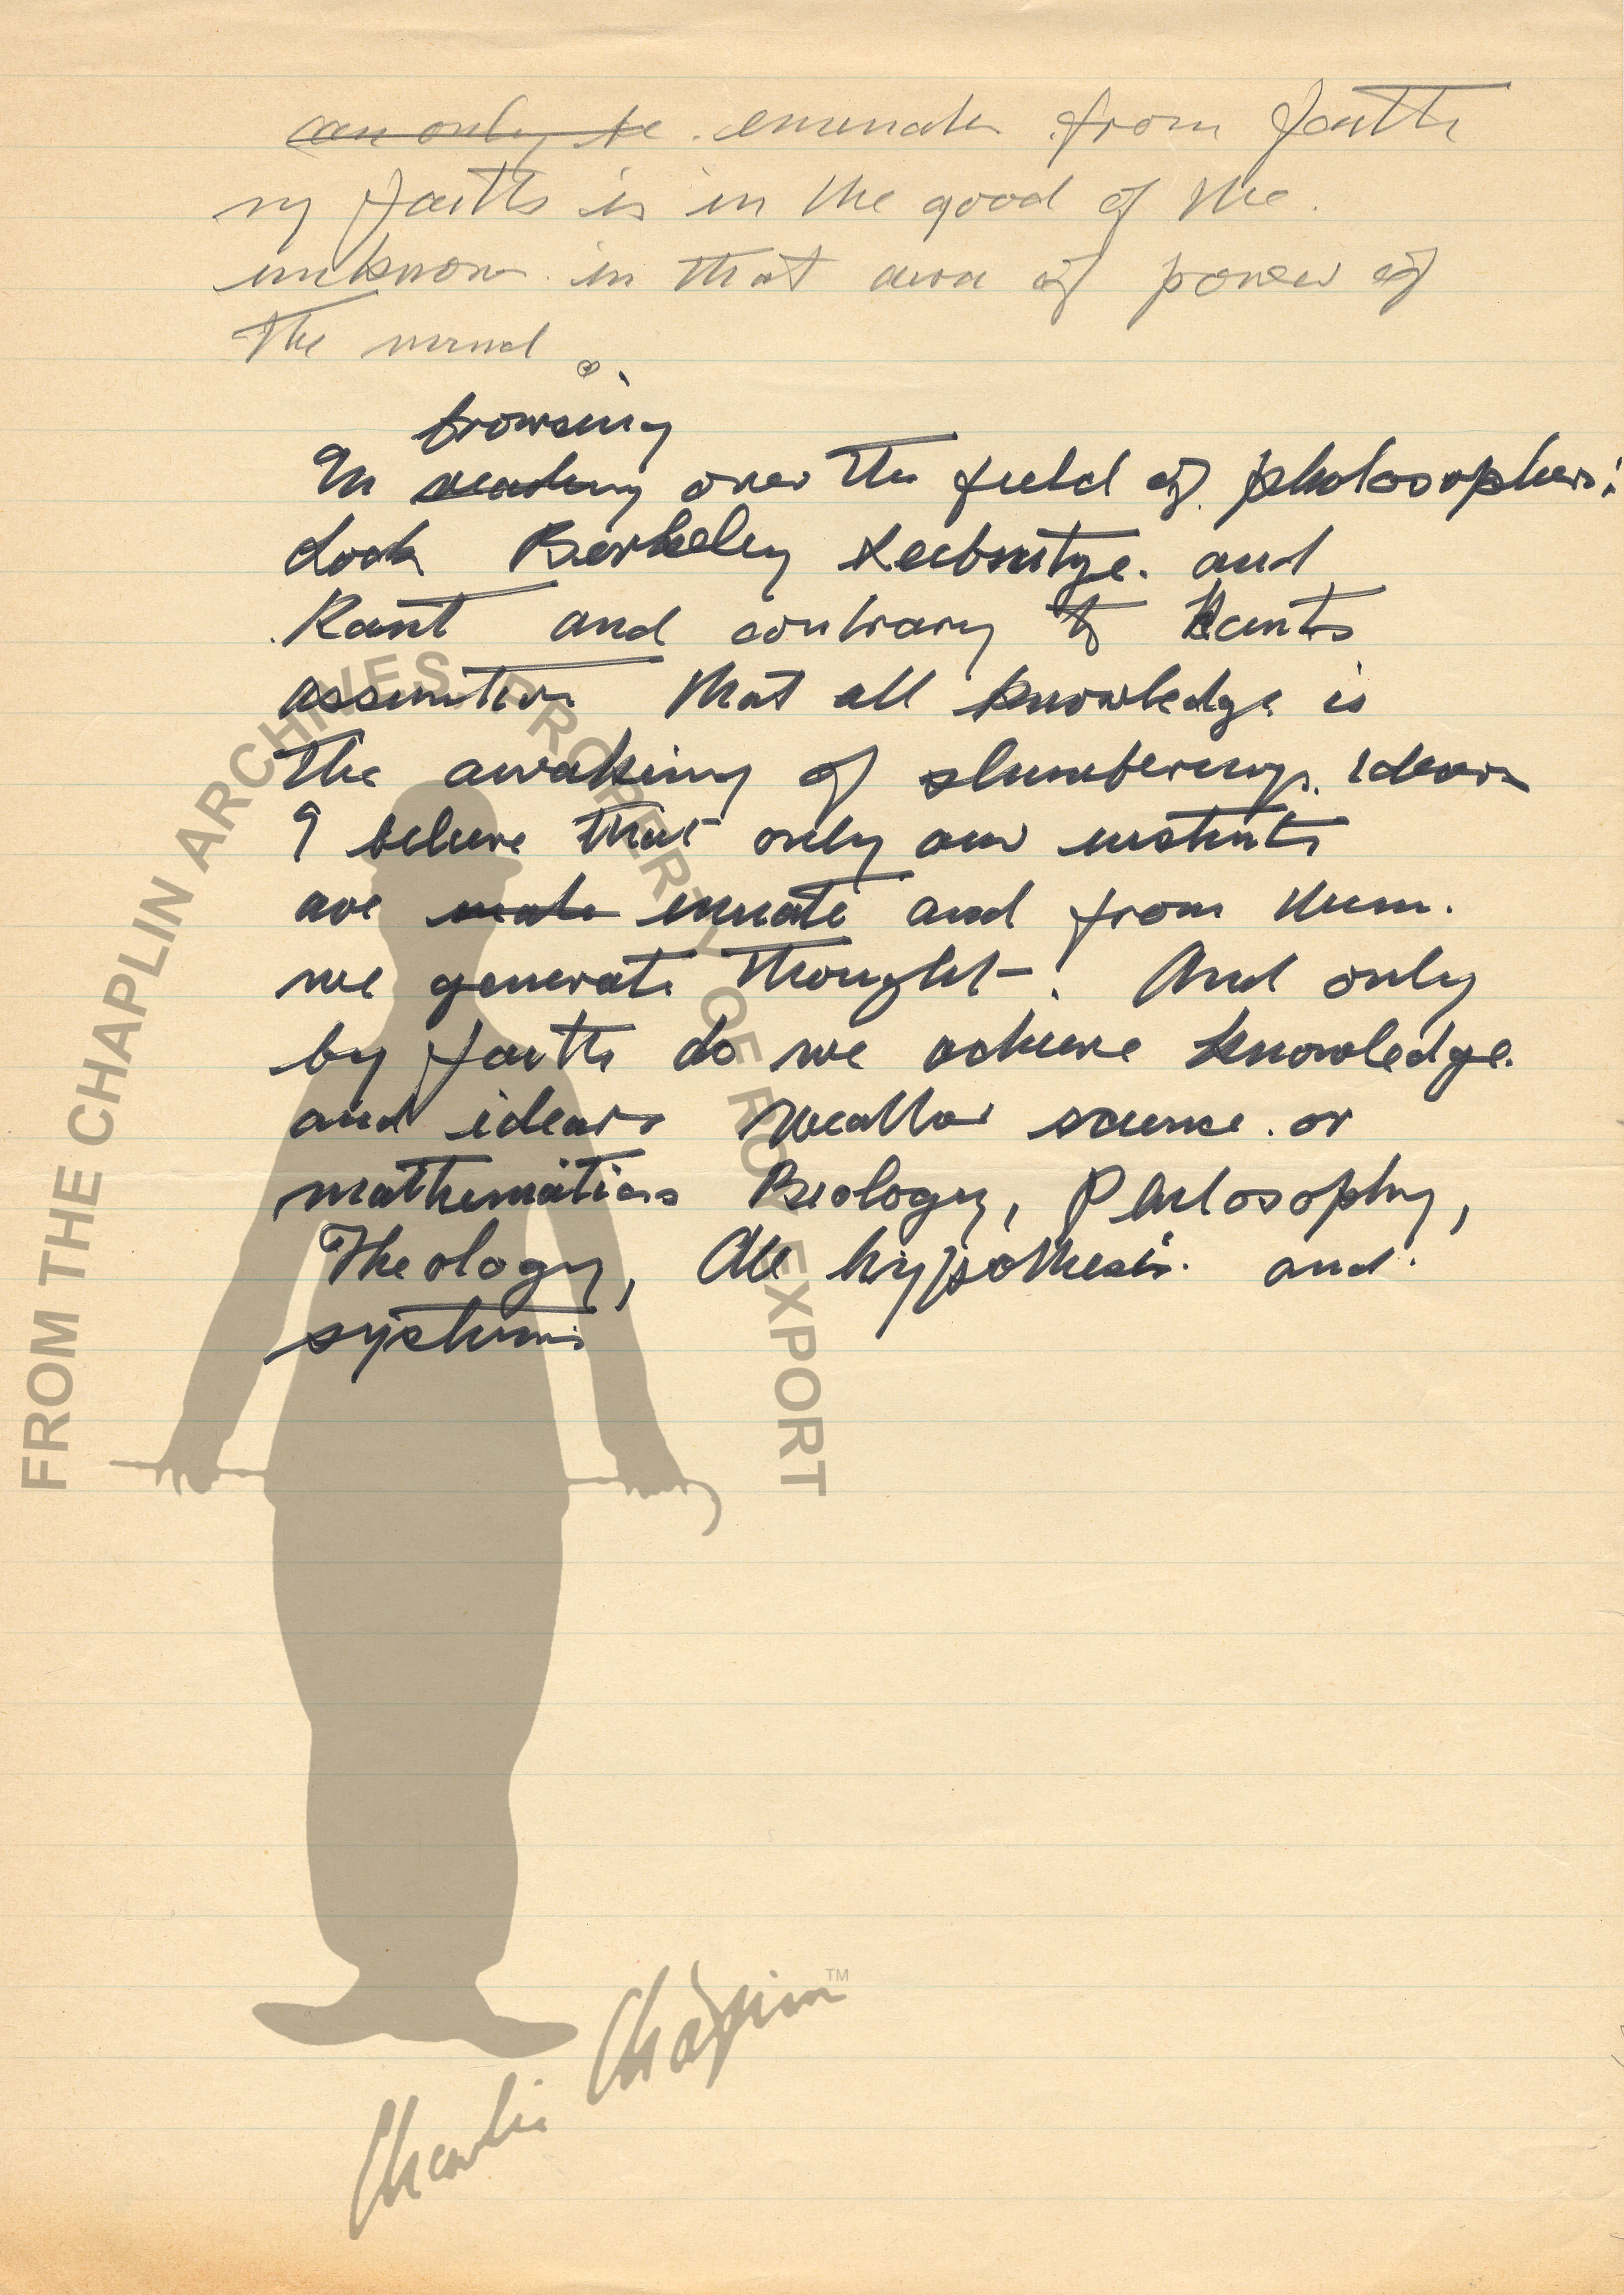 ~~can only be~~ emenate from faith
my faith is in the good of the
unknown in that area of power of
the mind
browsing
In ~~reading~~ over the field of pholosophers:
Look Berkeley Leibnitze. and
Kant and contrary to Kants
assumtion that all knowledge is
the awaking of slumbering ideas
I believe that only our instints
are innate and from them.
we generate thought. And only
by faith do we achieve knowledge.
and ideas science or
mathematics Biology, Philosophy,
Theology, All hypothesis. and
systems
FROM THE CHAPLIN ARCHIVES. PROPERTY OF ROY EXPORT
Charlie Chaplin™